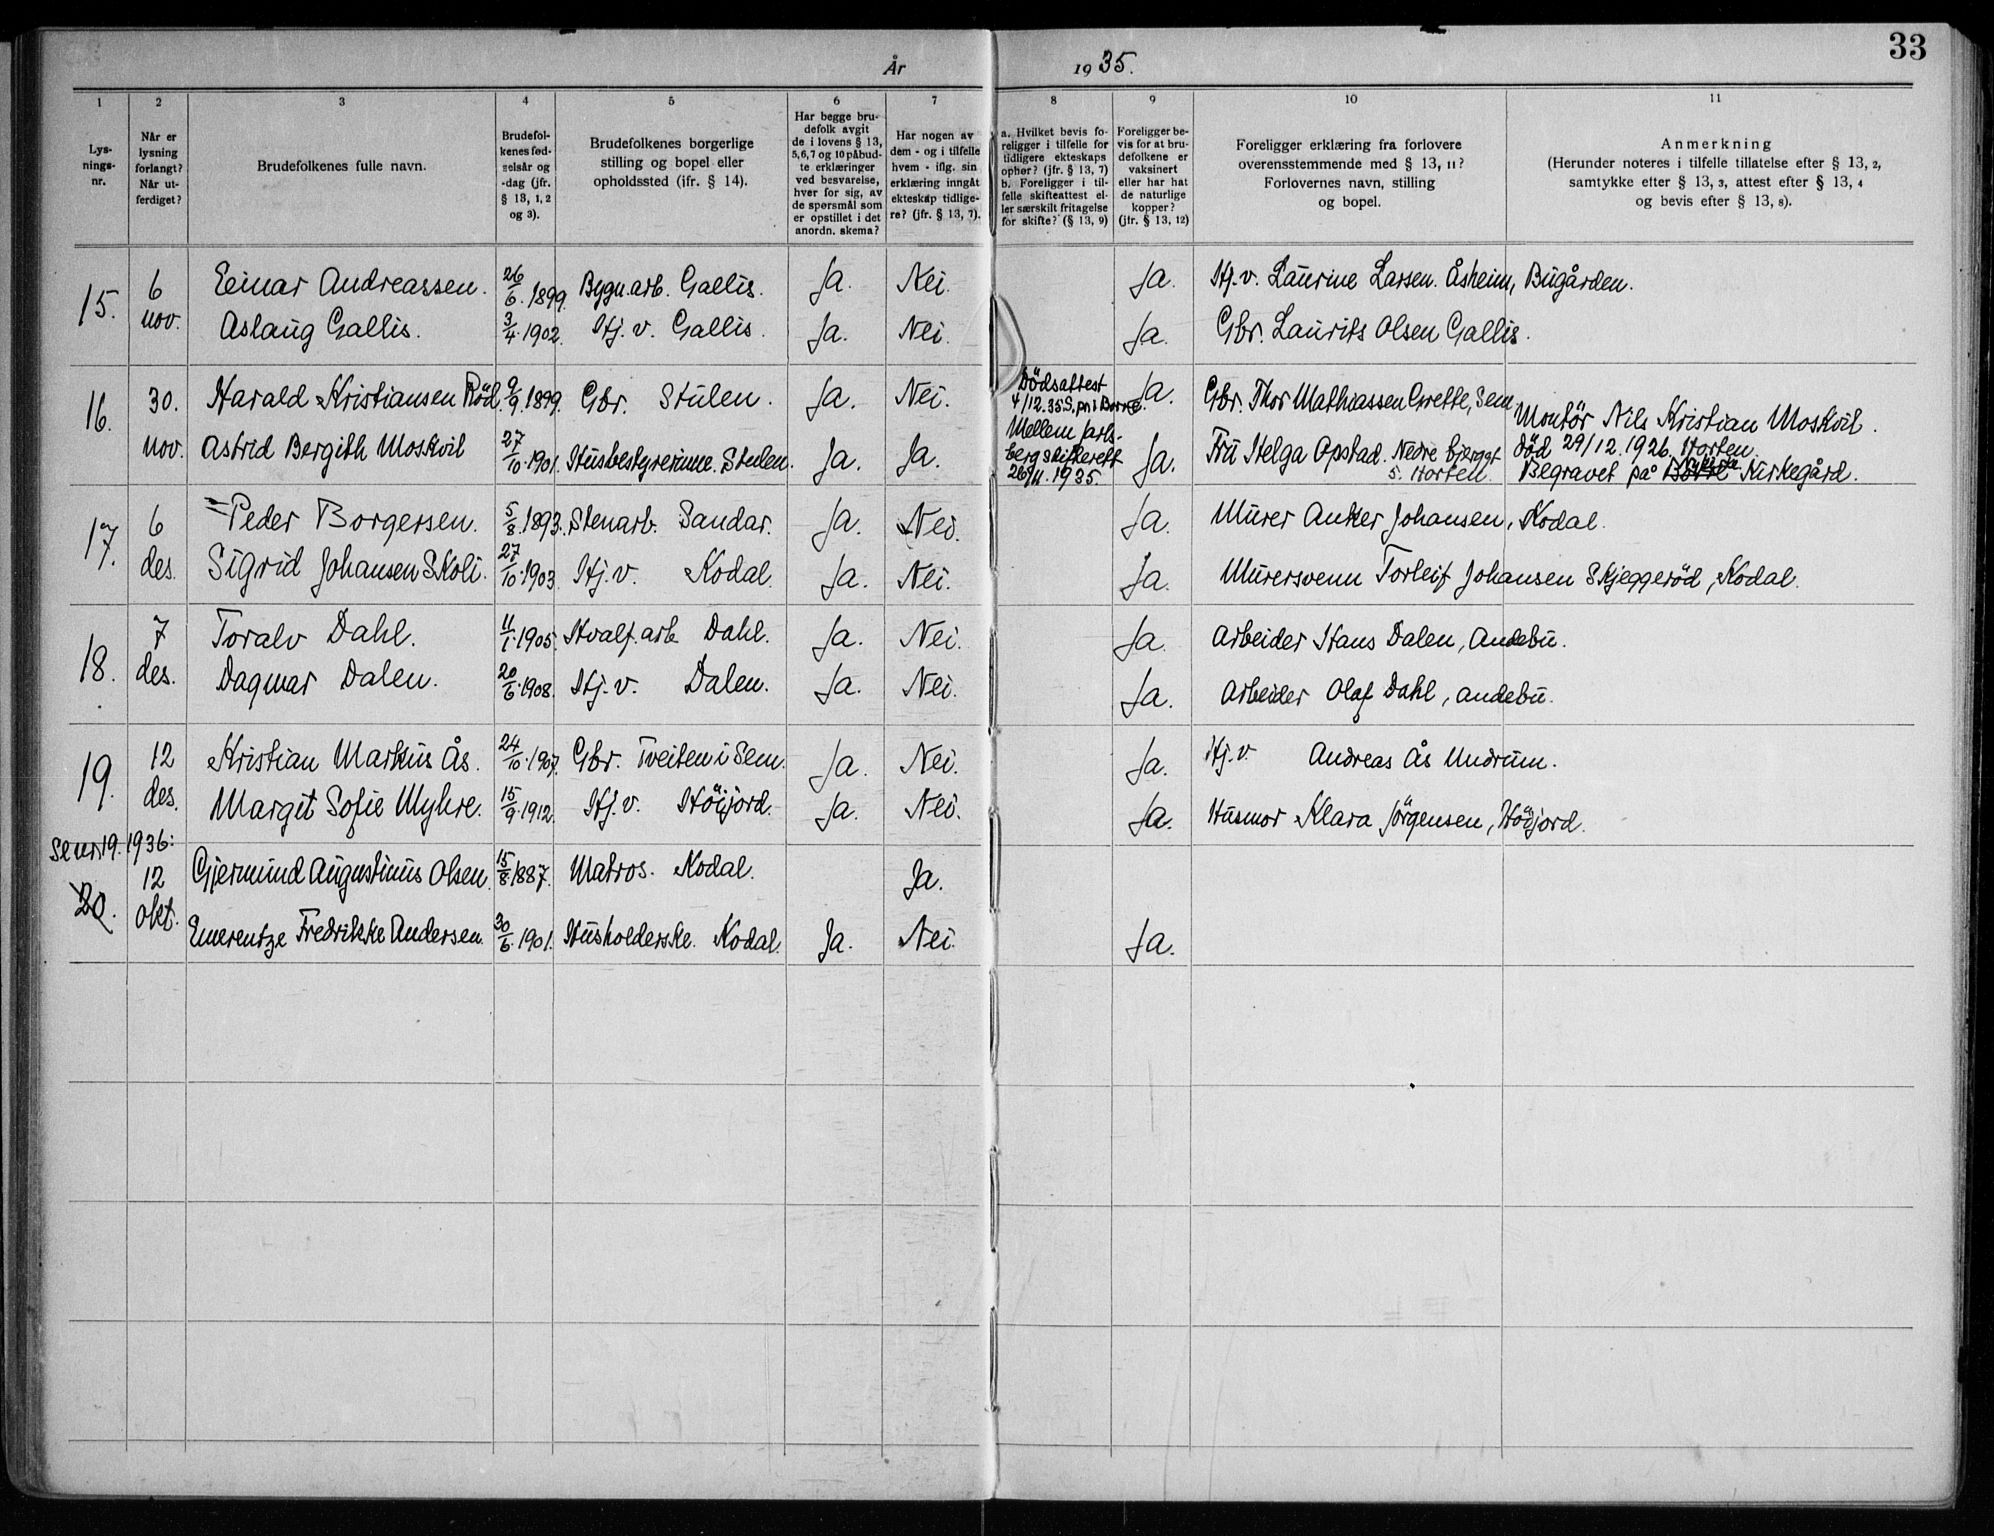 33
År 1935.
1 2 3 4 5 6 7 8 9 10 11
Lys-
nings-
nr.
Når er
lysning
forlangt?
Når ut-
ferdiget?
Brudefolkenes fulle navn.
Brudefol-
kenes fød-
selsår og
-dag (jfr.
§ 13, 1, 2
og 3).
Brudefolkenes borgerlige
stilling og bopel eller
opholdssted (jfr. § 14).
Har begge bru-
defolk avgit
de i lovens § 13,
5,6,7 og 10 påbud-
te erklæringer
ved besvarelse,
hver for sig, av
de spørsmål som
er opstillet i det
anordn. skema?
Har nogen av
dem - og i tilfelle
hvem - iflg. sin
erklæring inngått
ekteskap tidlige-
re? (jfr. § 13, 7).
a. Hvilket bevis fo-
religger i tilfelle for
tidligere ekteskaps
ophør? (jfr. § 13, 7)
b. Foreligger i til-
felle skifteattest el-
ler særskilt fritagelse
for skifte? (§ 13, 9)
Foreligger be-
vis for at bru-
defolkene er
vaksinert
eller har hat
de naturlige
kopper?
(jfr. § 13, 12)
Foreligger erklæring fra forlovere
overensstemmende med § 13, 11?
Forlovernes navn, stilling
og bopel.
Anmerkning
(Herunder noteres i tilfelle tillatelse efter § 13, 2,
samtykke efter § 13, 3, attest efter § 13, 4
og bevis efter § 13, 8).
15. 6 nov. Einar Andreassen. 26/6.1899. Bygn.arb. Gallis. Ja. Nei. Ja. Hj.v. Laurine Larsen. Åsheim, Bugården.
Aslaug Gallis. 3/4.1902. Hj.v. Gallis. Ja. Nei. Ja. Gbr. Laurits Olsen Gallis.
16. 30. nov. Harald Kristiansen Röd. 9/9.1899. Gbr. Stulen. Ja. Nei. Ja. Gbr. Thor Mathiassen Grette, Sem
Dödsattest
4/12.35 S.pr. i Borre.
Mellem Jarls-
berg skifterett
26/11.1935.
Astrid Bergith Moskvil 27/10.1901. Husbestyrerinne. Stulen. Ja. Ja. Ja. Fru Helga Opstad. Nedre bjerggt
5. Horten.
Montör Nils Kristian Moskvil.
död 29/12.1926. Horten.
Begravet på Borre Kirkegård.
17. 6 des. Peder Borgersen. 5/8.1893. Stenarb. Sandar. Ja. Nei. Ja. Murer Anker Johansen, Kodal.
Sigrid Johansen Skoli. 27/10.1903. Hj.v. Kodal. Ja. Nei. Ja. Murersvenn Torleif Johansen Skjeggeröd, Kodal.
18. 7 des. Toralv Dahl. 11/1.1905. Hvalf.arb. Dahl. Ja. Nei. Ja. Arbeider Hans Dalen, Andebu.
Dagmar Dalen. 20/6.1908. Hj.v. Dalen. Ja. Nei. Ja. Arbeider Olaf Dahl, Andebu.
19. 12 des. Kristian Markus Ås. 24/10.1907. Gbr. Tveiten i Sem. Ja. Nei. Ja. Hj.v. Andreas Ås Undrum.
Margit Sofie Myhre. 15/9.1912. Hj.v. Höijord. Ja. Nei. Ja. Husmor Klara Jörgensen, Höijord.
Se nr. 19. 1936:
20. 12 okt. Gjermund Augustinus Olsen. 15/8.1887. Matros. Kodal. Ja.
Emerentze Fredrikke Andersen. 30/6.1901. Husholderske. Kodal. Ja. Nei. Ja.